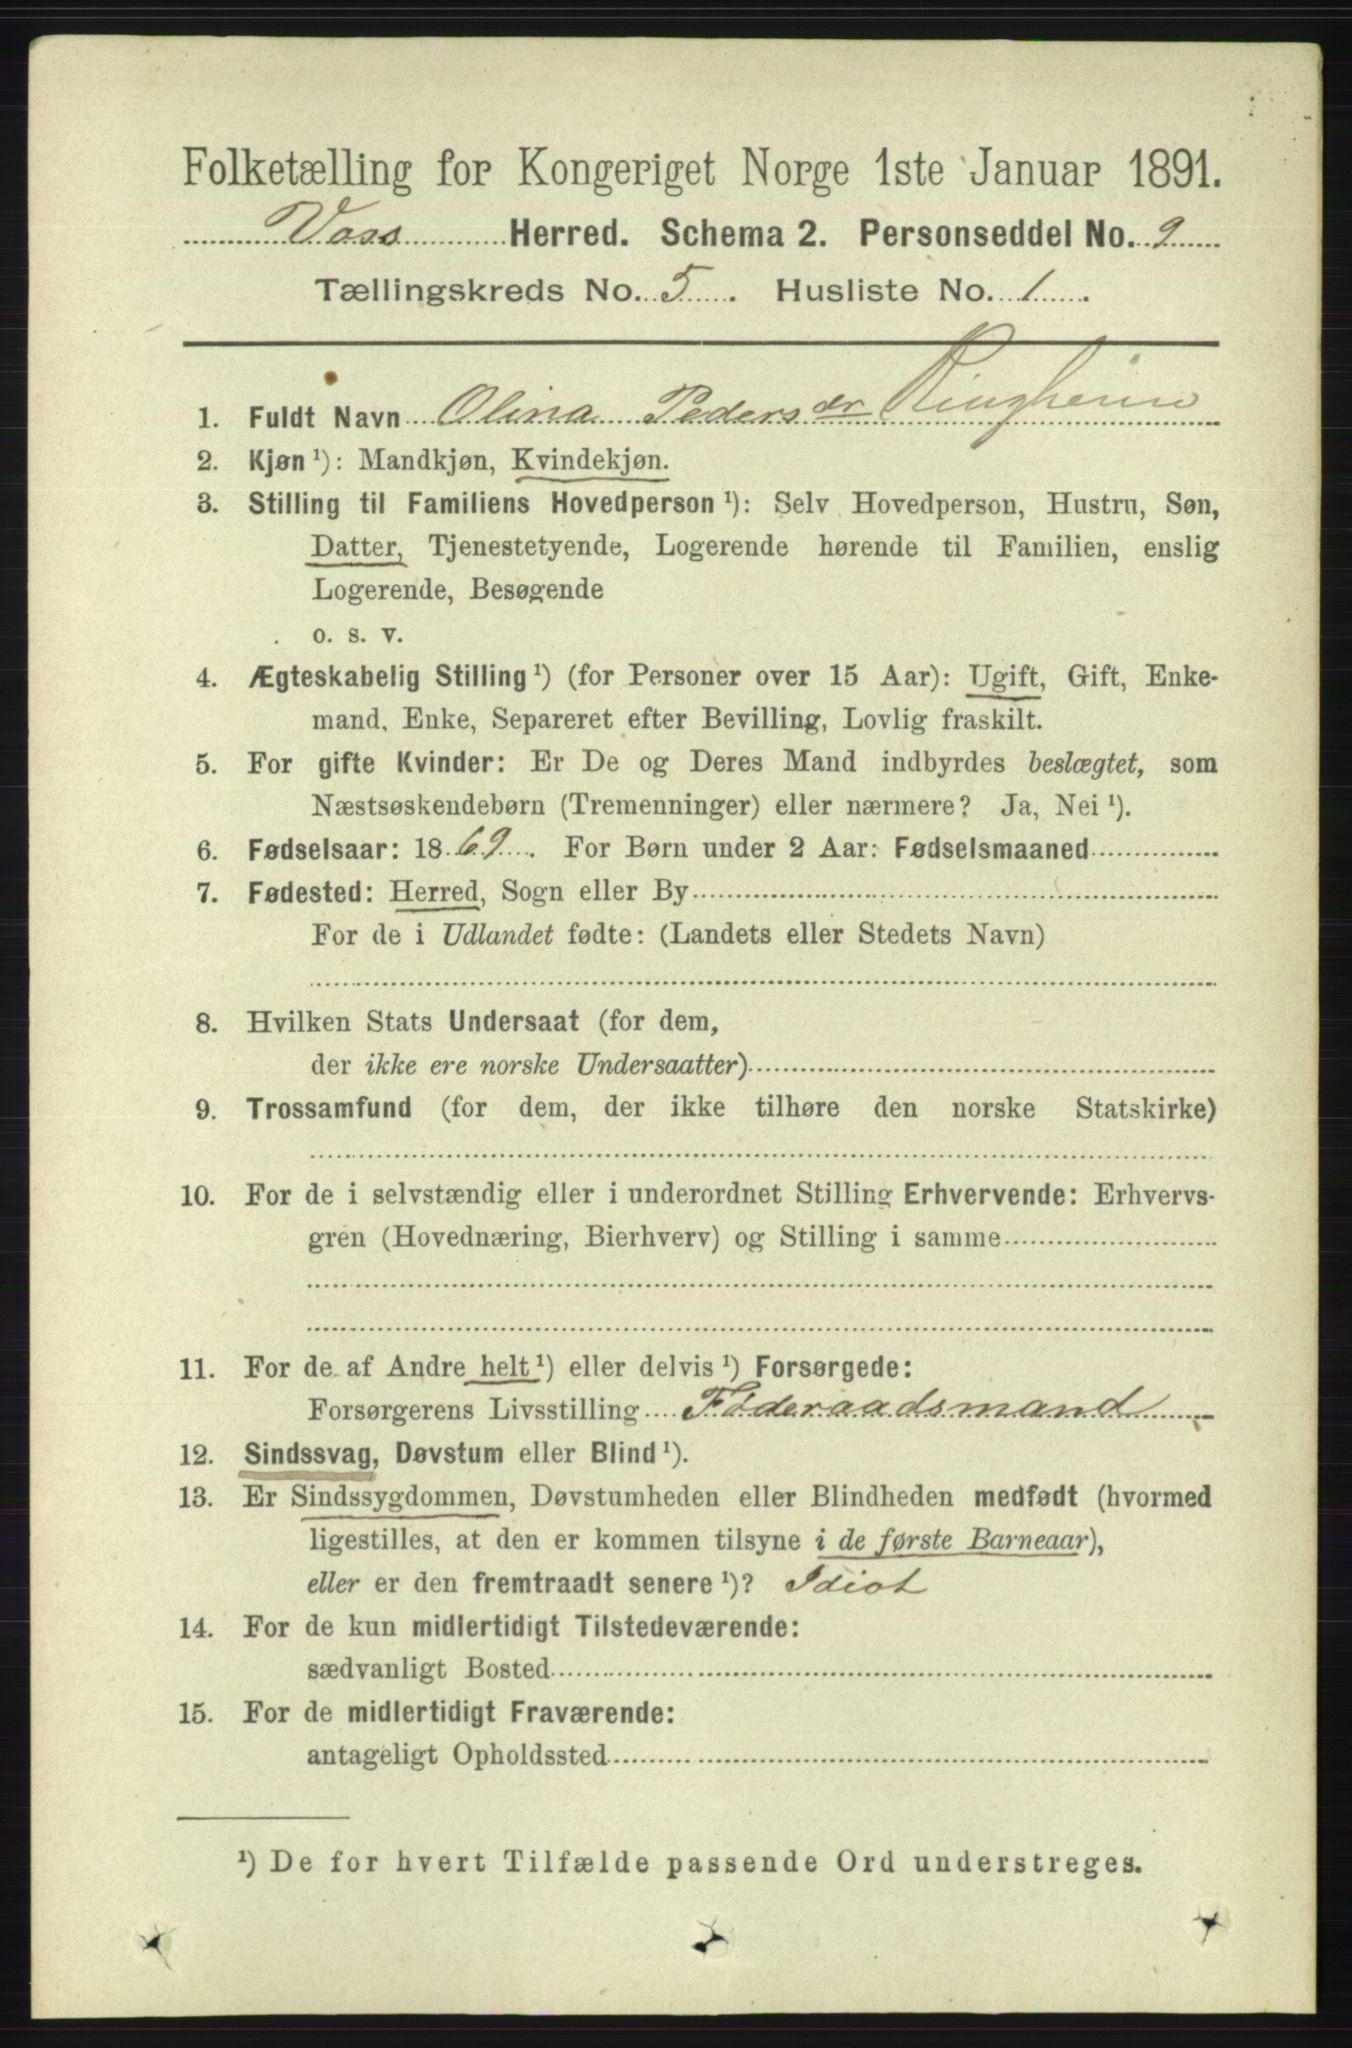 Folketælling for Kongeriget Norge 1ste Januar 1891.
Voss Herred. Schema 2. Personseddel No. 9
Tællingskreds No. 5. Husliste No. 1.
1. Fuldt Navn Olina Pedersdr Ringheim
2. Kjøn ¹): Mandkjøn, Kvindekjøn.
3. Stilling til Familiens Hovedperson ¹): Selv Hovedperson, Hustru, Søn,
Datter, Tjenestetyende, Logerende hørende til Familien, enslig
Logerende, Besøgende
o. s. v.
4. Ægteskabelig Stilling ¹) (for Personer over 15 Aar): Ugift, Gift, Enke-
mand, Enke, Separeret efter Bevilling, Lovlig fraskilt.
5. For gifte Kvinder: Er De og Deres Mand indbyrdes beslægtet, som
Næstsøskendebørn (Tremenninger) eller nærmere? Ja, Nei ¹).
6. Fødselsaar: 1869. For Børn under 2 Aar: Fødselsmaaned
7. Fødested: Herred, Sogn eller By
For de i Udlandet fødte: (Landets eller Stedets Navn)
8. Hvilken Stats Undersaat (for dem,
der ikke ere norske Undersaatter)
9. Trossamfund (for dem, der ikke tilhøre den norske Statskirke)
10. For de i selvstændig eller i underordnet Stilling Erhvervende: Erhvervs-
gren (Hovednæring, Bierhverv) og Stilling i samme
11. For de af Andre helt ¹) eller delvis ¹) Forsørgede:
Forsørgerens Livsstilling Føderaadsmand
12. Sindssvag, Døvstum eller Blind ¹).
13. Er Sindssygdommen, Døvstumheden eller Blindheden medfødt (hvormed
ligestilles, at den er kommen tilsyne i de første Barneaar),
eller er den fremtraadt senere ¹)? Idiot
14. For de kun midlertidigt Tilstedeværende:
sædvanligt Bosted
15. For de midlertidigt Fraværende:
antageligt Opholdssted
¹) De for hvert Tilfælde passende Ord understreges.